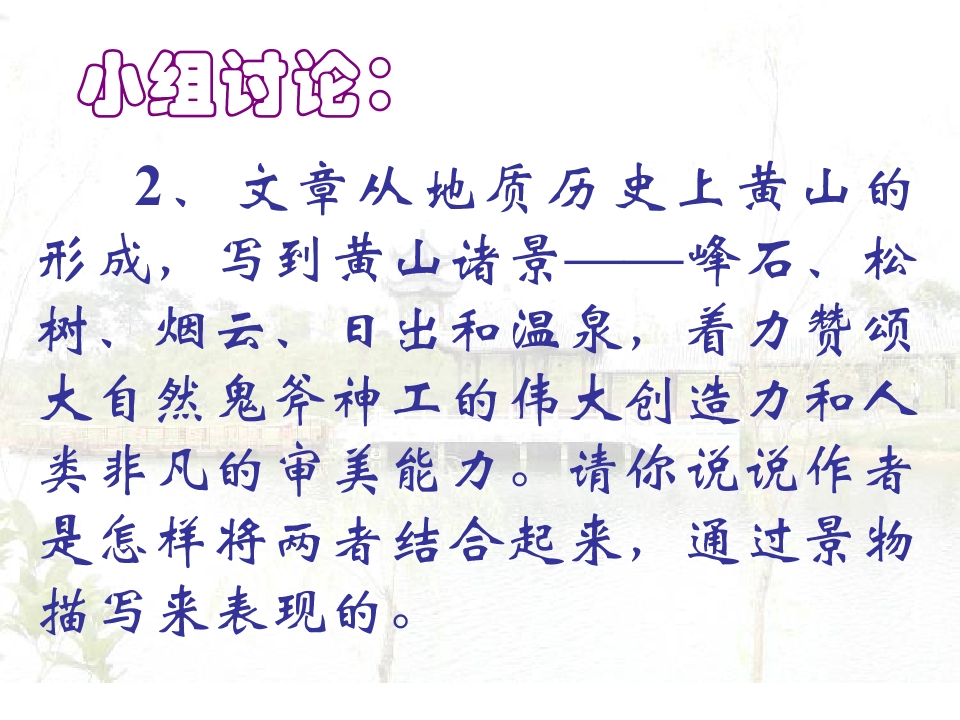 小组讨论：
2、文章从地质历史上黄山的
形成，写到黄山诸景——峰石、松
树、烟云、日出和温泉，着力赞颂
大自然鬼斧神工的伟大创造力和人
类非凡的审美能力。请你说说作者
是怎样将两者结合起来，通过景物
描写来表现的。